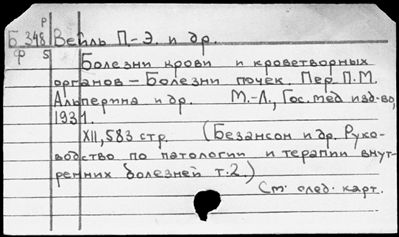 Р
Б 348 Вейль П-Э. и др.
Ф 5
Болезни крови и кроветворных
органов - Болезни почек. Пер. П.М.
Альперина и др. М.-Л., Гос. мед изд-во,
1931.
XII, 583 стр. (Безансон и др. Руко-
водство по патологии и терапии внут-
ренних болезней т.2.)
См. след. карт.